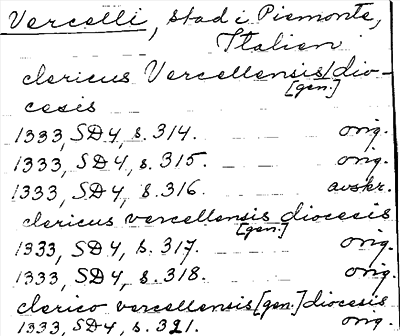 Vercelli, stad i Piemonte,
Italien
clericus Vercellensis/dio-
[gen.]
cesis
1333, SD4, s. 314. orig.
1333, SD4, s. 315. orig.
1333, SD4, s. 316. avskr.
clericus vercellensis diocesis
[gen.]
1333, SD4, s. 317. orig.
1333, SD4, s. 318. orig.
clerico vercellensis [gen.] diocesis
1333, SD4, s. 321. orig.